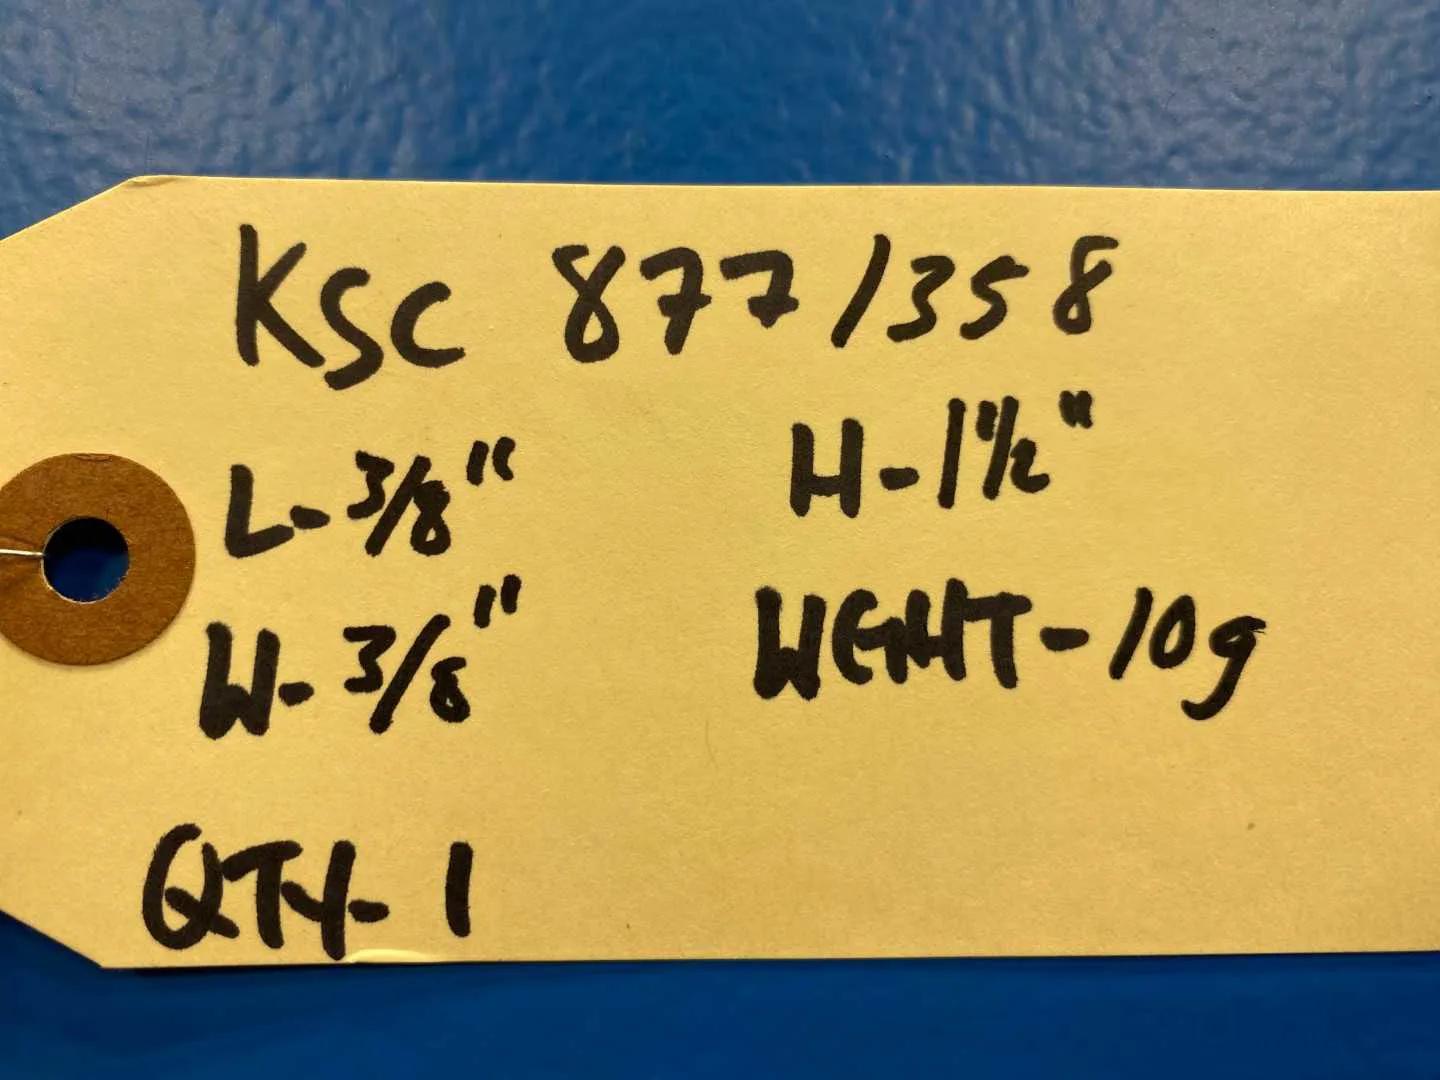 KSC 877/358
L-3/8" H-1 1/2"
W-3/8" WEGHT-10g
QTY-1